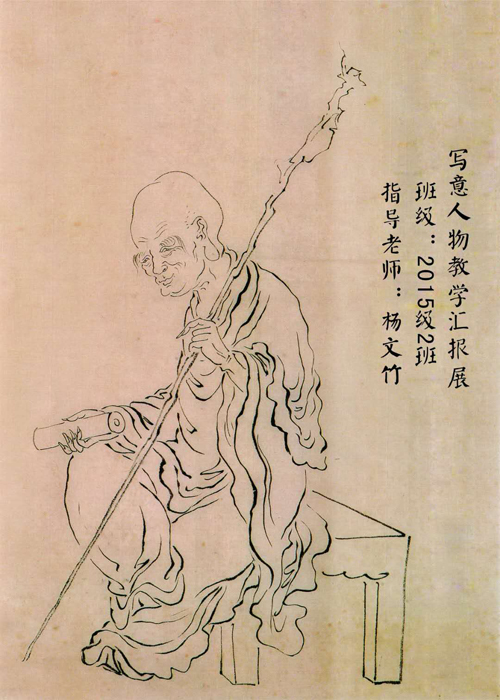 写意人物教学汇报展
班级：2015级2班
指导老师：杨文竹